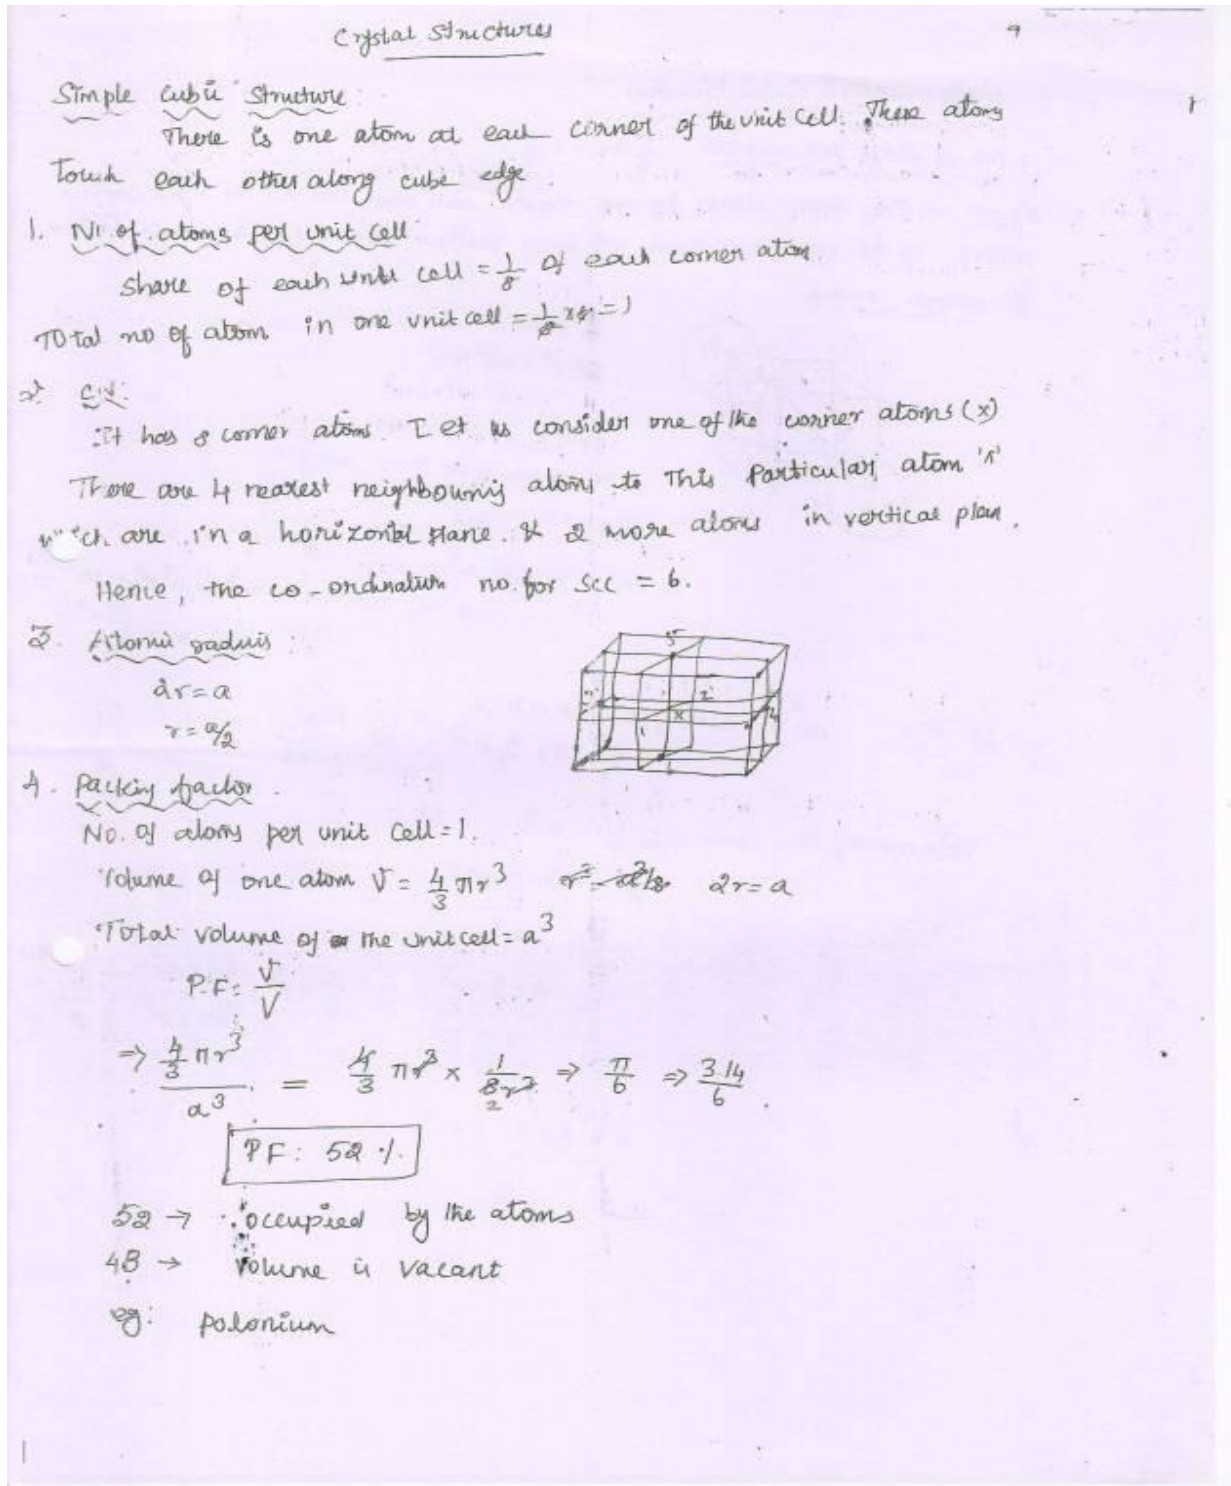 Crystal Structures
Simple Cubic Structure:
There is one atom at each corner of the unit cell. These atoms
Touch each other along cubic edge
1. No of atoms per unit cell
Share of each unit cell = 1/8 of each corner atom
Total no of atom in one unit cell = 1/8 x 8 = 1
2. C.N:
It has 8 corner atoms. Let us consider one of the corner atoms (x)
There are 4 nearest neighbouring atoms to This Particular atom 'x'
which are in a horizontal plane. & 2 more atoms in vertical plan.
Hence, the co-ordination no. for SCC = 6.
3. Atomic radius:
2r = a
r = a/2
5
2
x
1
4. Packing factor
No. of atoms per unit cell = 1.
Volume of one atom v = 4/3 πr³ 2r = a
Total volume of the unit cell = a³
P.F: v/V
⇒ 4/3 πr³ / a³ = 4/3 πr³ x 1/8r³ ⇒ π/6 ⇒ 3.14/6
PF: 52 %.
52 → occupied by the atoms
48 → Volume is vacant
eg: polonium